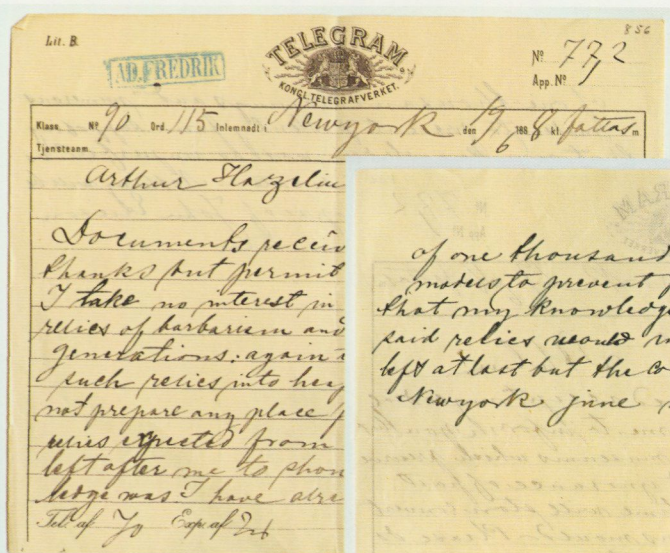 856
Lit. B.
AD. FREDRIK
TELEGRAM
KONGL. TELEGRAFVERKET.
Nº 772
App. Nº
Klass Nº 90 Ord 115 Inlemnadt i Newyork den 19/6 1888 kl. fattas m
Tjensteanm.
Arthur Hazeliu
Documents receiv
thanks but permit
I take no interest in
relics of barbarism and
generations: again
such relics into heap
not prepare any place
relics expected from
left after me to show
ledge was I have alre
Tel. af Exp. af
of one thousand
models to prevent
that my knowledge
said relics would
left at last but the co
Newyork june